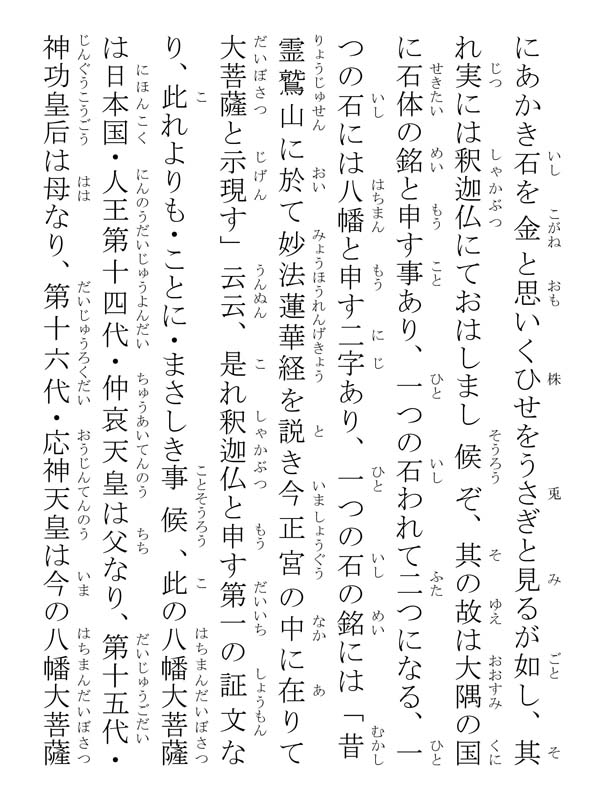 にあかき石を金と思いくひせをうさぎと見るが如し、其
れ実には釈迦仏にておはしまし候ぞ、其の故は大隅の国
に石体の銘と申す事あり、一つの石われて二つになる、一
つの石には八幡と申す二字あり、一つの石の銘には「昔
霊鷲山に於て妙法蓮華経を説き今正宮の中に在りて
大菩薩と示現す」云云、是れ釈迦仏と申す第一の証文な
り、此れよりも・ことに・まさしき事候、此の八幡大菩薩
は日本国・人王第十四代・仲哀天皇は父なり、第十五代・
神功皇后は母なり、第十六代・応神天皇は今の八幡大菩薩